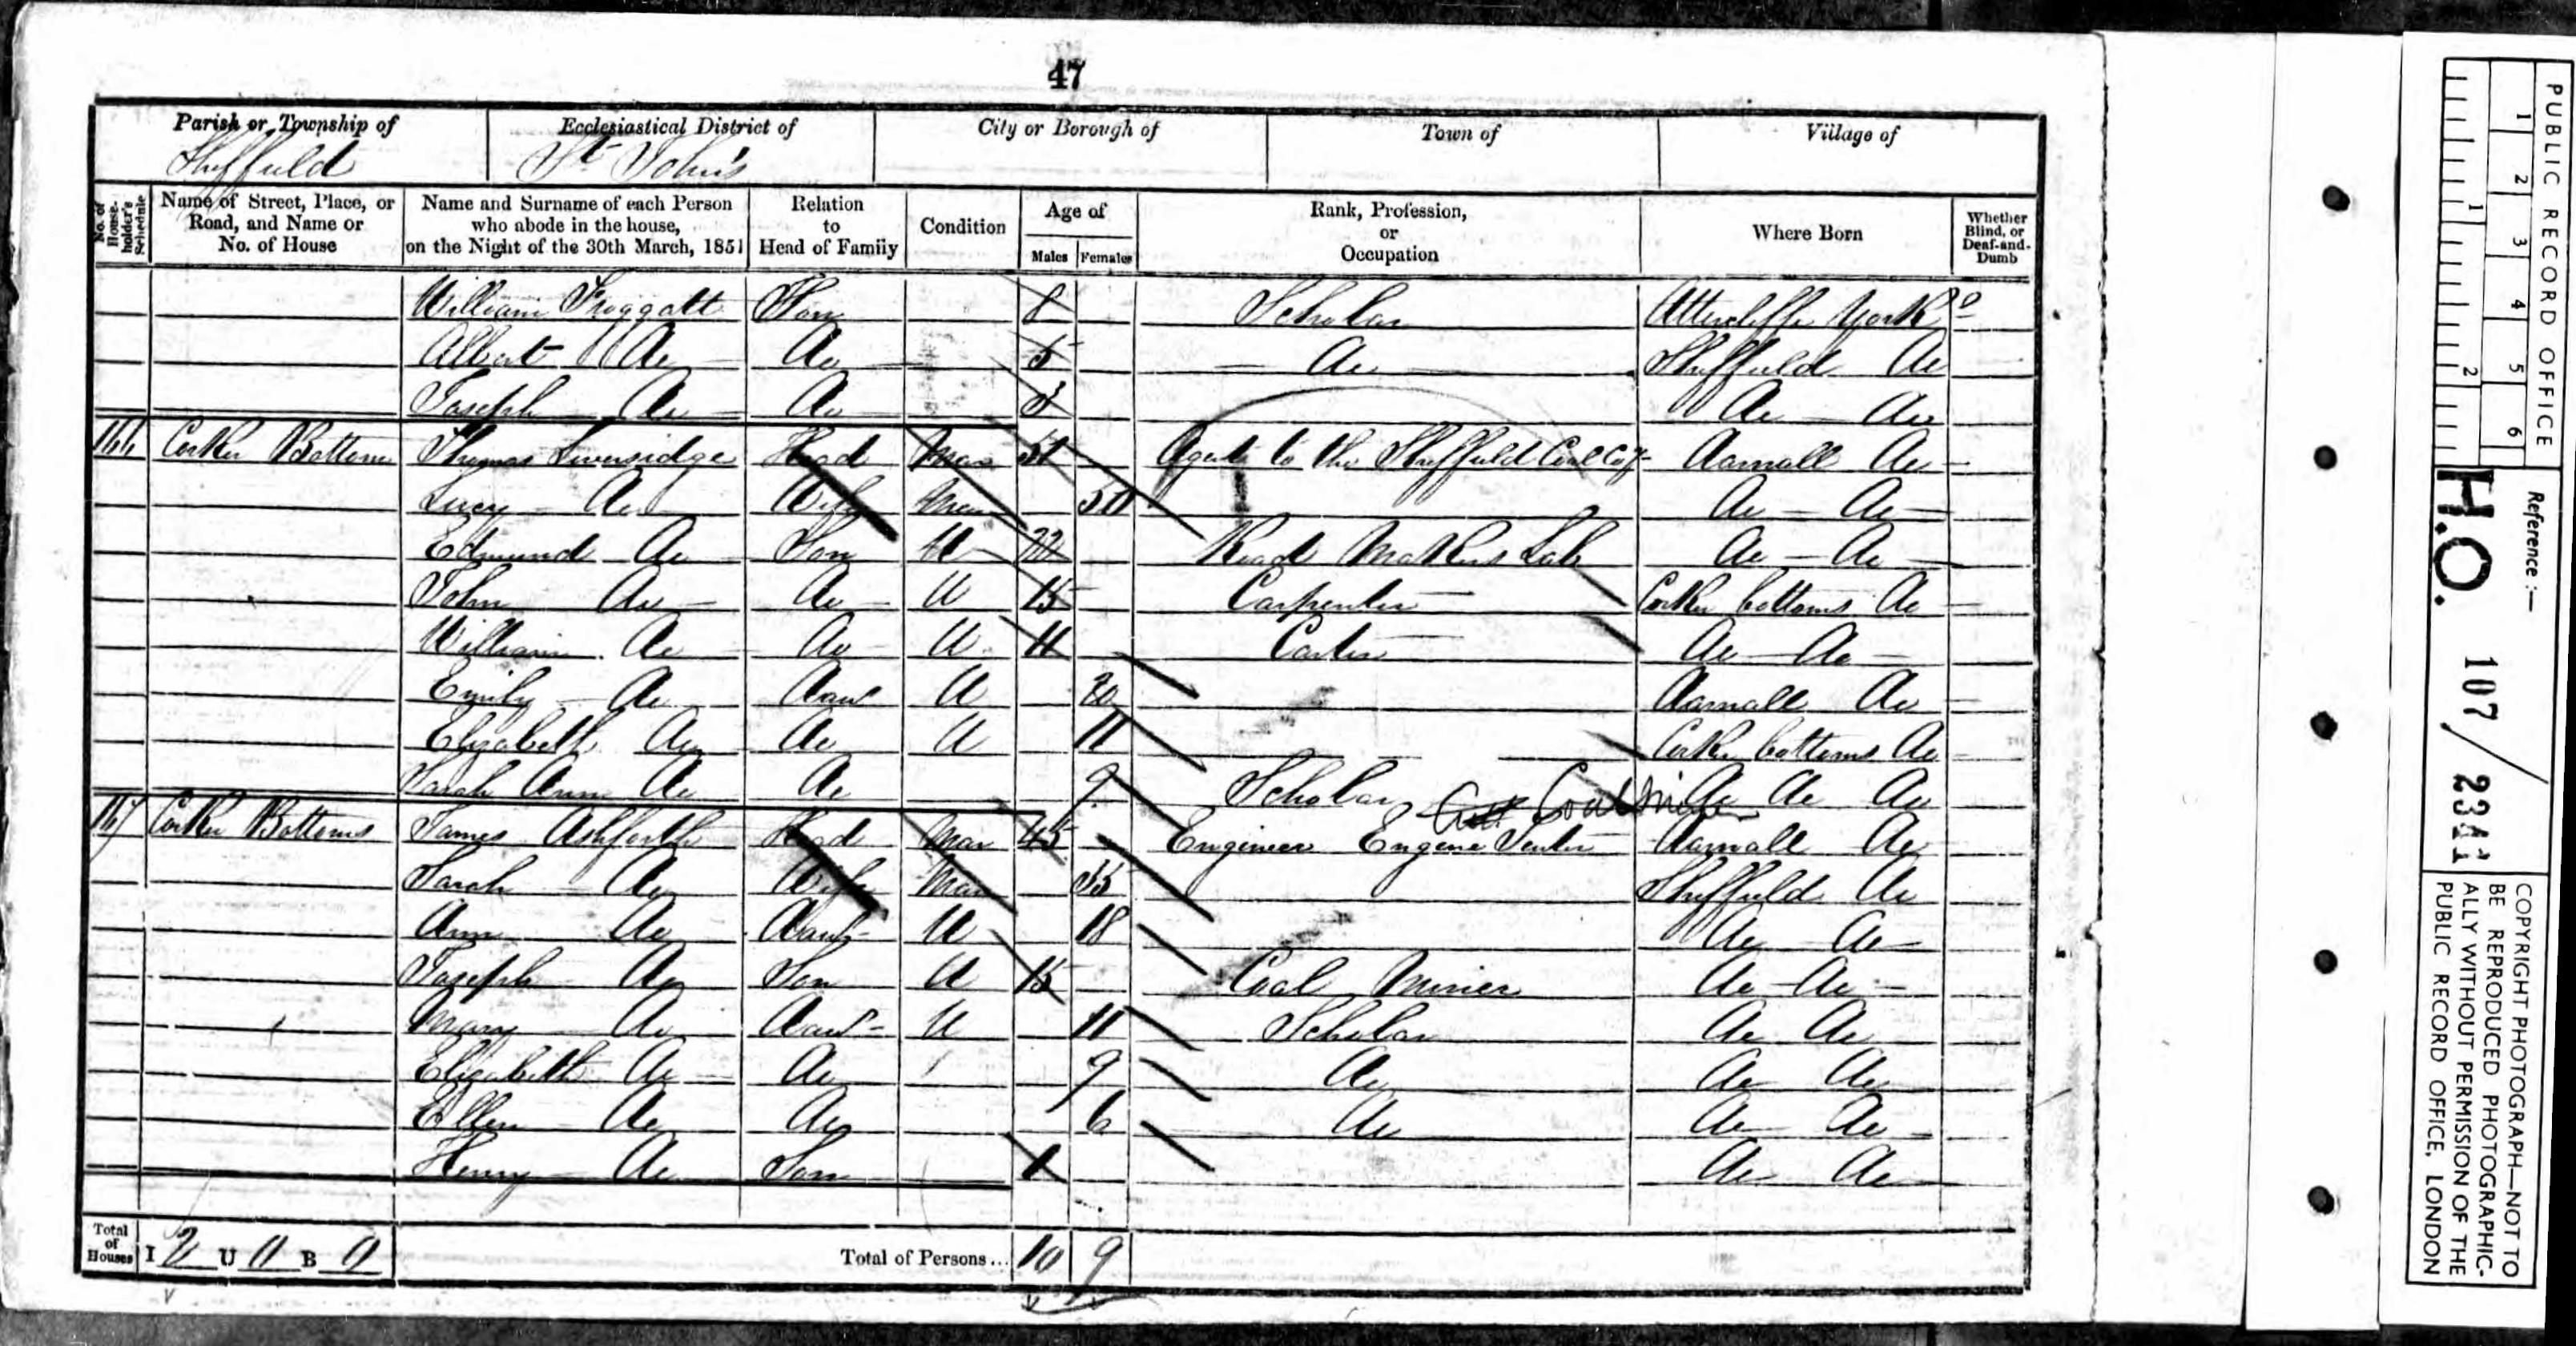 47
Parish or Township of Ecclesiastical District of City or Borough of Town of Village of
Sheffield St John's
No. of House-holder's Schedule Name of Street, Place, or Road, and Name or No. of House Name and Surname of each Person who abode in the house, on the Night of the 30th March, 1851 Relation to Head of Family Condition Age of Males Females Rank, Profession, or Occupation Where Born Whether Blind, or Deaf-and-Dumb
William Froggatt Son 8 Scholar Attercliffe York
Albert Do Do 5 Do Sheffield Do
Joseph Do Do 3 Do Do
166 Corker Bottoms Thomas Liversidge Head Mar 51 Agent to the Sheffield Coal Coy Darnall Do
Lucy Do Wife Mar Do Do
Edmund Do Son U 22 Road Makers Lab Do Do
John Do Do U 15 Carpenter Corker bottoms Do
William Do Do U 11 Carter Do Do
Emily Do Daur U 20 Darnall Do
Elizabeth Do Do U 11 Corker bottoms Do
Sarah Ann Do Do 9 Scholar Do Do Do
Coal Mine
167 Corker Bottoms James Ashforth Head Mar 45 Engineer Engine Tenter Darnall Do
Sarah Do Wife Mar 35 Sheffield Do
Ann Do Daur U 18 Do Do
Joseph Do Son U 15 Coal Miner Do Do
Mary Do Daur U 11 Scholar Do Do
Elizabeth Do Do 9 Do Do Do
Ellen Do Do 6 Do Do Do
Henry Do Son 1 Do Do
Total of Houses I 2 U 0 B 0 Total of Persons... 10 9
PUBLIC RECORD OFFICE
1 2 3 4 5 6
1 2
Reference :—
H.O. 107/2341
COPYRIGHT PHOTOGRAPH—NOT TO
BE REPRODUCED PHOTOGRAPHIC-
ALLY WITHOUT PERMISSION OF THE
PUBLIC RECORD OFFICE, LONDON